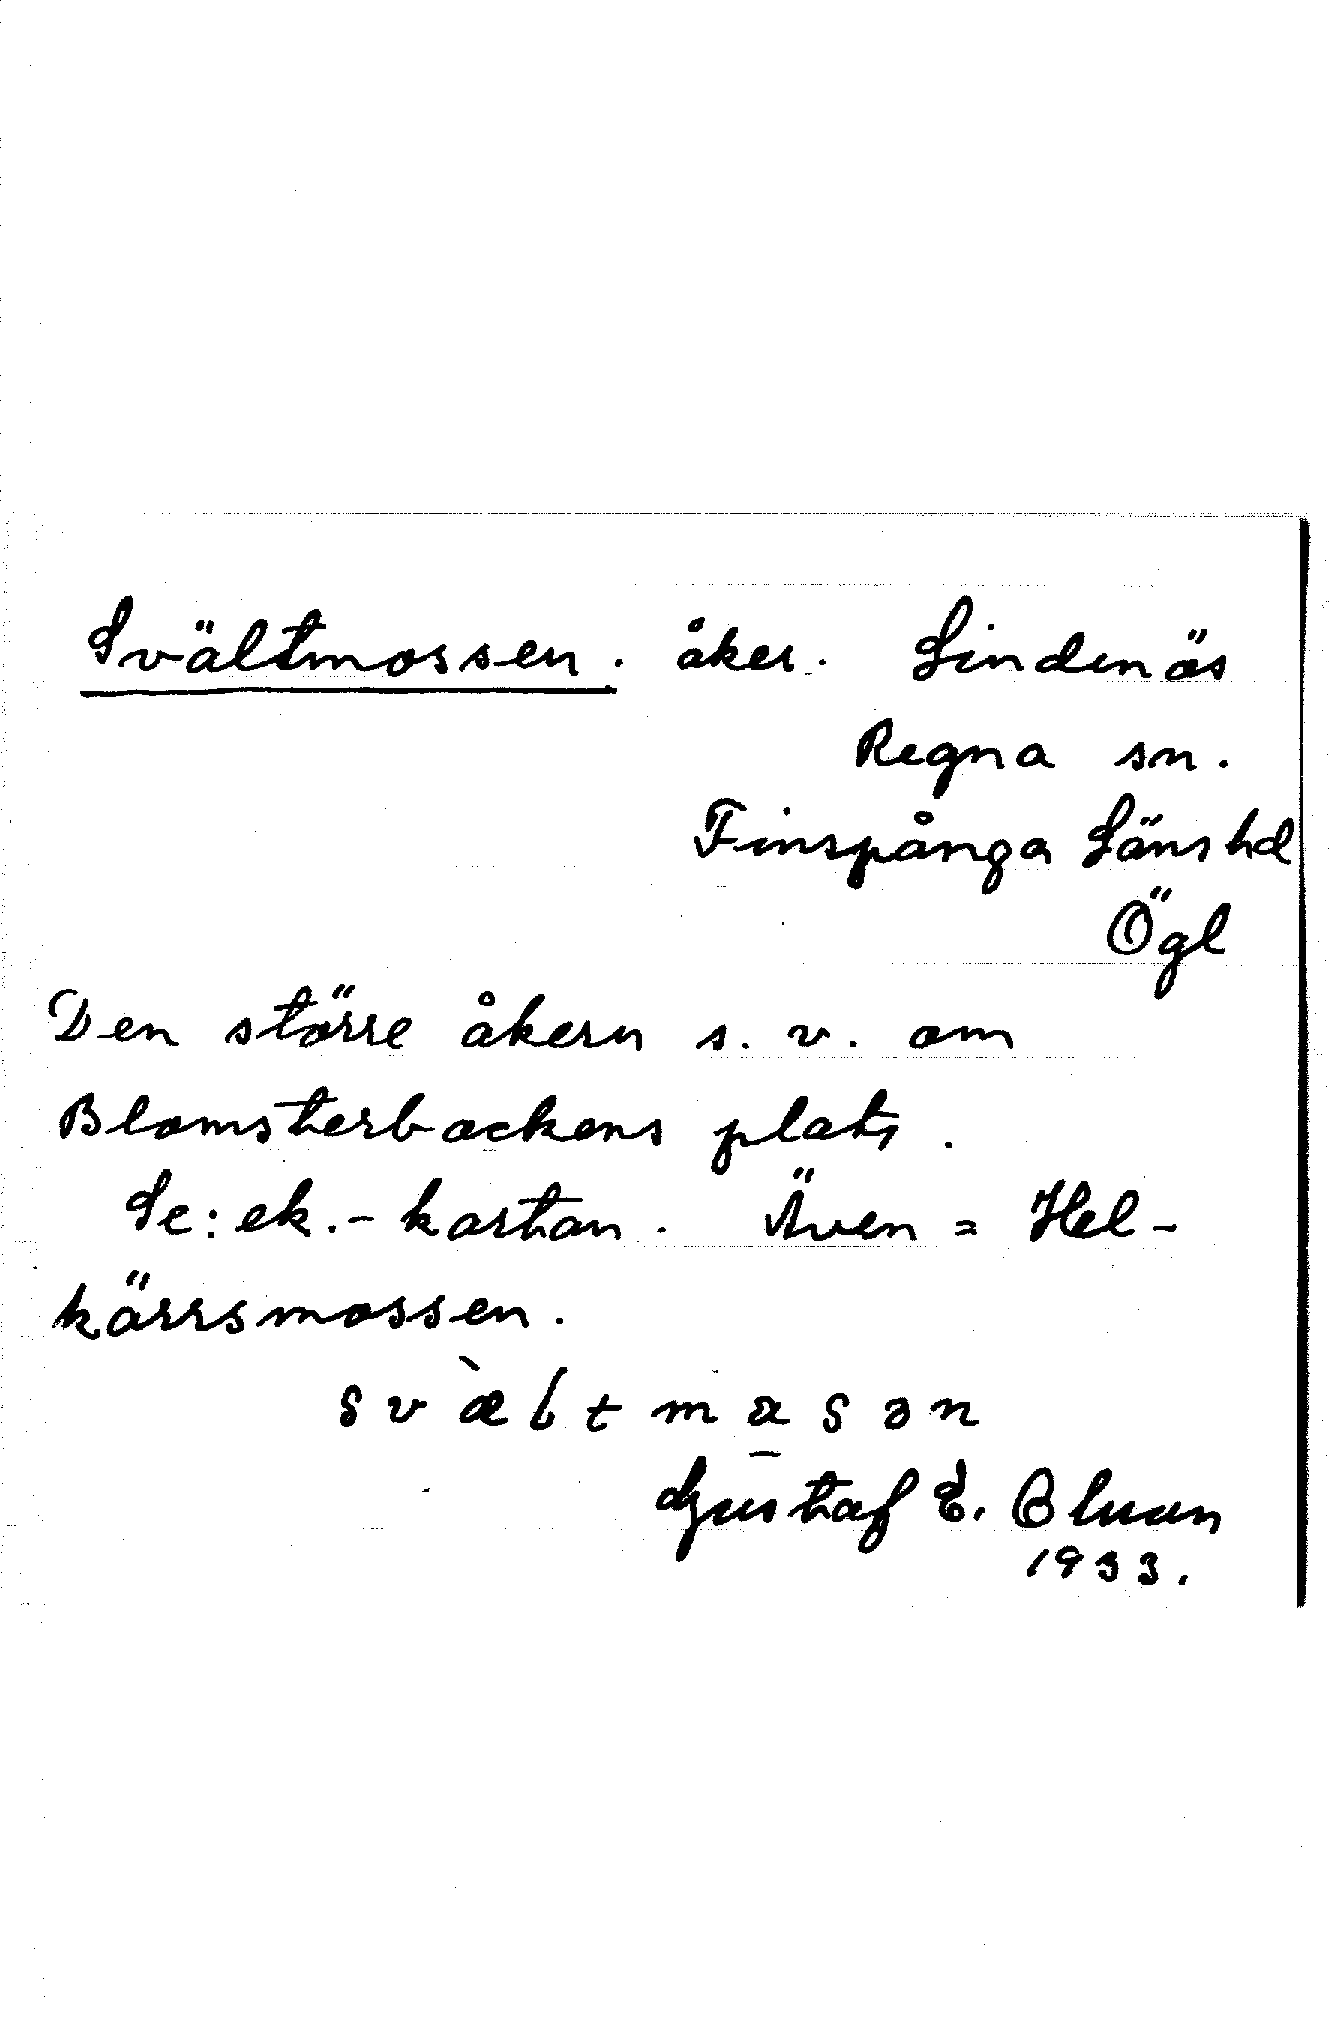 Svältmossen. åker. Lindenäs
Regna sn.
Finspånga Länshd
Ögl
Den större åkern s. v. om
Blomsterbackens plats.
Se: ek.-kartan. Även = Hel-
kärrsmossen.
Gustaf E.
1933.